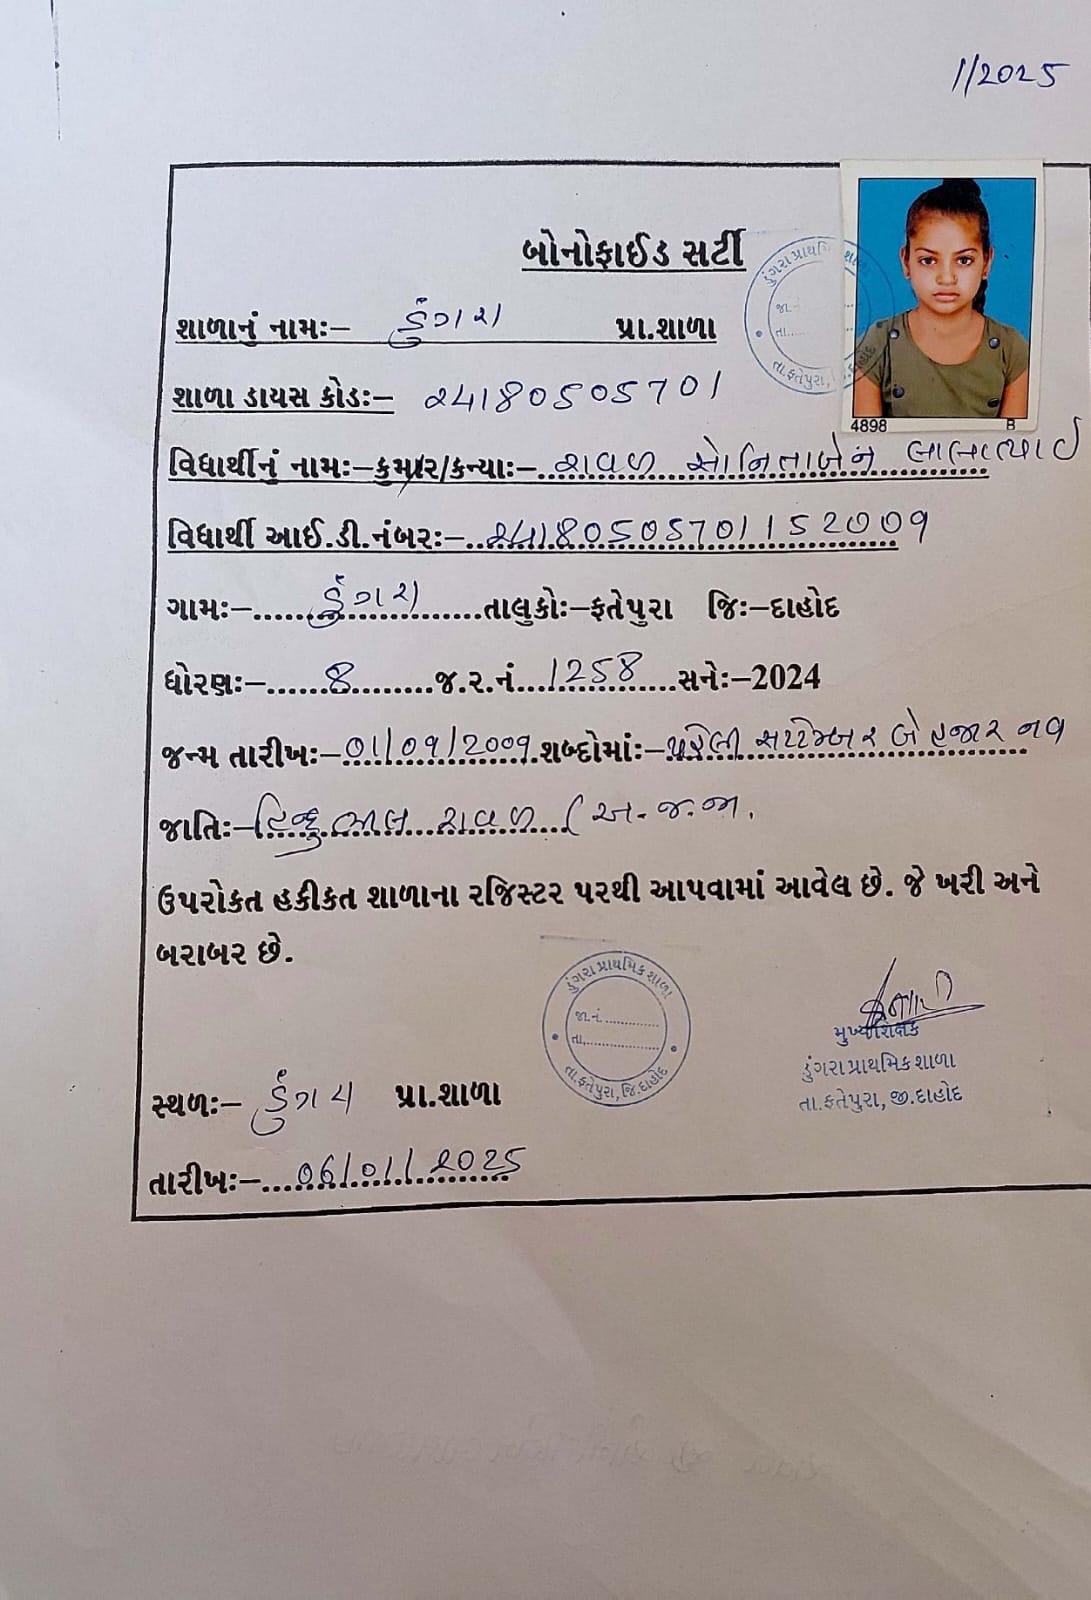 1/2025
બોનોફાઈડ સર્ટી
શાળાનું નામઃ- ડુંગરા પ્રા.શાળા
શાળા ડાયસ કોડઃ- 24180505701
વિદ્યાર્થીનું નામઃ-કુમાર/કન્યાઃ-રાવળ સોનિતાબેન લાલાભાઈ
વિદ્યાર્થી આઈ.ડી.નંબરઃ-24180505701152009
ગામઃ-ડુંગરા તાલુકોઃ-ફતેપુરા જિઃ-દાહોદ
ધોરણઃ-8 જ.ર.નં 1258 સનેઃ-2024
જન્મ તારીખઃ-01/09/2009 શબ્દોમાંઃ-પહેલી સપ્ટેમ્બર બે હજાર નવ
જાતિઃ-હિન્દુ ભીલ રાવળ (અ.જ.જા.
ઉપરોકત હકીકત શાળાના રજિસ્ટર પરથી આપવામાં આવેલ છે. જે ખરી અને
બરાબર છે.
સ્થળઃ- ડુંગરા પ્રા.શાળા
તારીખઃ-06/01/2025
મુખ્યશિક્ષક
ડુંગરા પ્રાથમિક શાળા
તા.ફતેપુરા, જી.દાહોદ
ડુંગરા પ્રાથમિક શાળા
જા.નં.
તા.
તા.ફતેપુરા, જિ.દાહોદ
ડુંગરા પ્રાથમિક શાળા
જા.નં
તા.
તા.ફતેપુરા, જિ.દાહોદ
4898 B